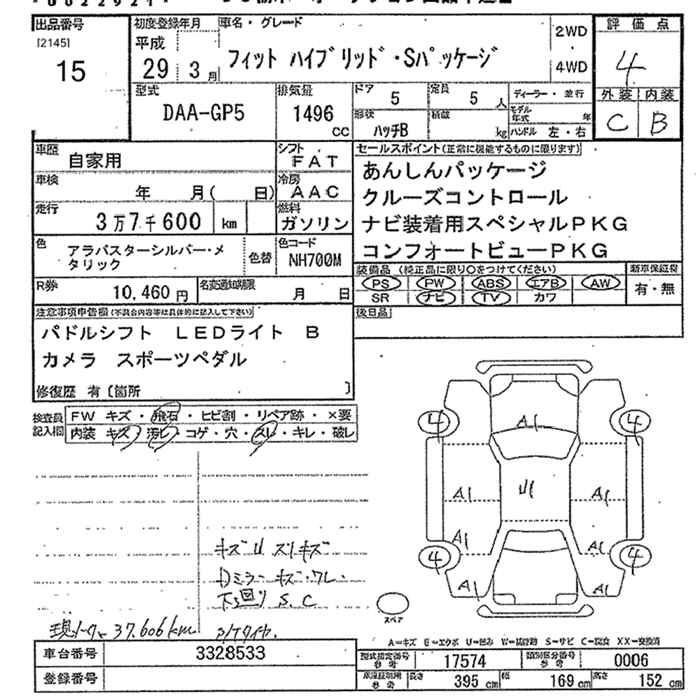 出品番号 初度登録年月 車名・グレード 評価点
[2145] 平成 2WD
15 29 3月 フィット ハイブリッド・Sパッケージ 4WD 4
型式 排気量 ドア 定員 ディーラー・並行 外装 内装
DAA-GP5 1496 CC 5 5人 モデル年式 年 C B
形状 積載
ハッチB kg ハンドル 左・右
車歴 シフト セールスポイント(正常に機能するものに限ります)
自家用 FAT あんしんパッケージ
車検 冷房
年 月( 日) AAC クルーズコントロール
走行 燃料
3万7千600 km ガソリン ナビ装着用スペシャルPKG
色 アラバスターシルバー・メタリック 色替 色コード NH700M コンフォートビューPKG
装備品(純正品に限り○をつけてください) 新車保証書
R券 名変通知期限 PS PW ABS エアB AW 有・無
10,460円 月 日 SR ナビ TV カワ
注意事項申告欄(不具合内容等は具体的に記入して下さい) 後日品
パドルシフト LEDライト B
カメラ スポーツペダル
修復歴 有〔箇所 〕
検査員 FW キズ・飛石・ヒビ割・リペア跡・×要
記入欄 内装 キズ・汚レ・コゲ・穴・スレ・キレ・破レ
4 A1 4
A1 U1 A1
A1 A1
4 4
A1 A1
キズU スリキズ
Dミラーキズ・ワレ
下回りS.C
37.606km
スペア
A=キズ E=エクボ U=凹み S=サビ C=腐食 XX=交換済
車台番号 3328533 型式指定番号 参考 17574 類別区分番号 参考 0006
登録番号 参考 長さ 395cm 幅 169cm 高さ 152cm